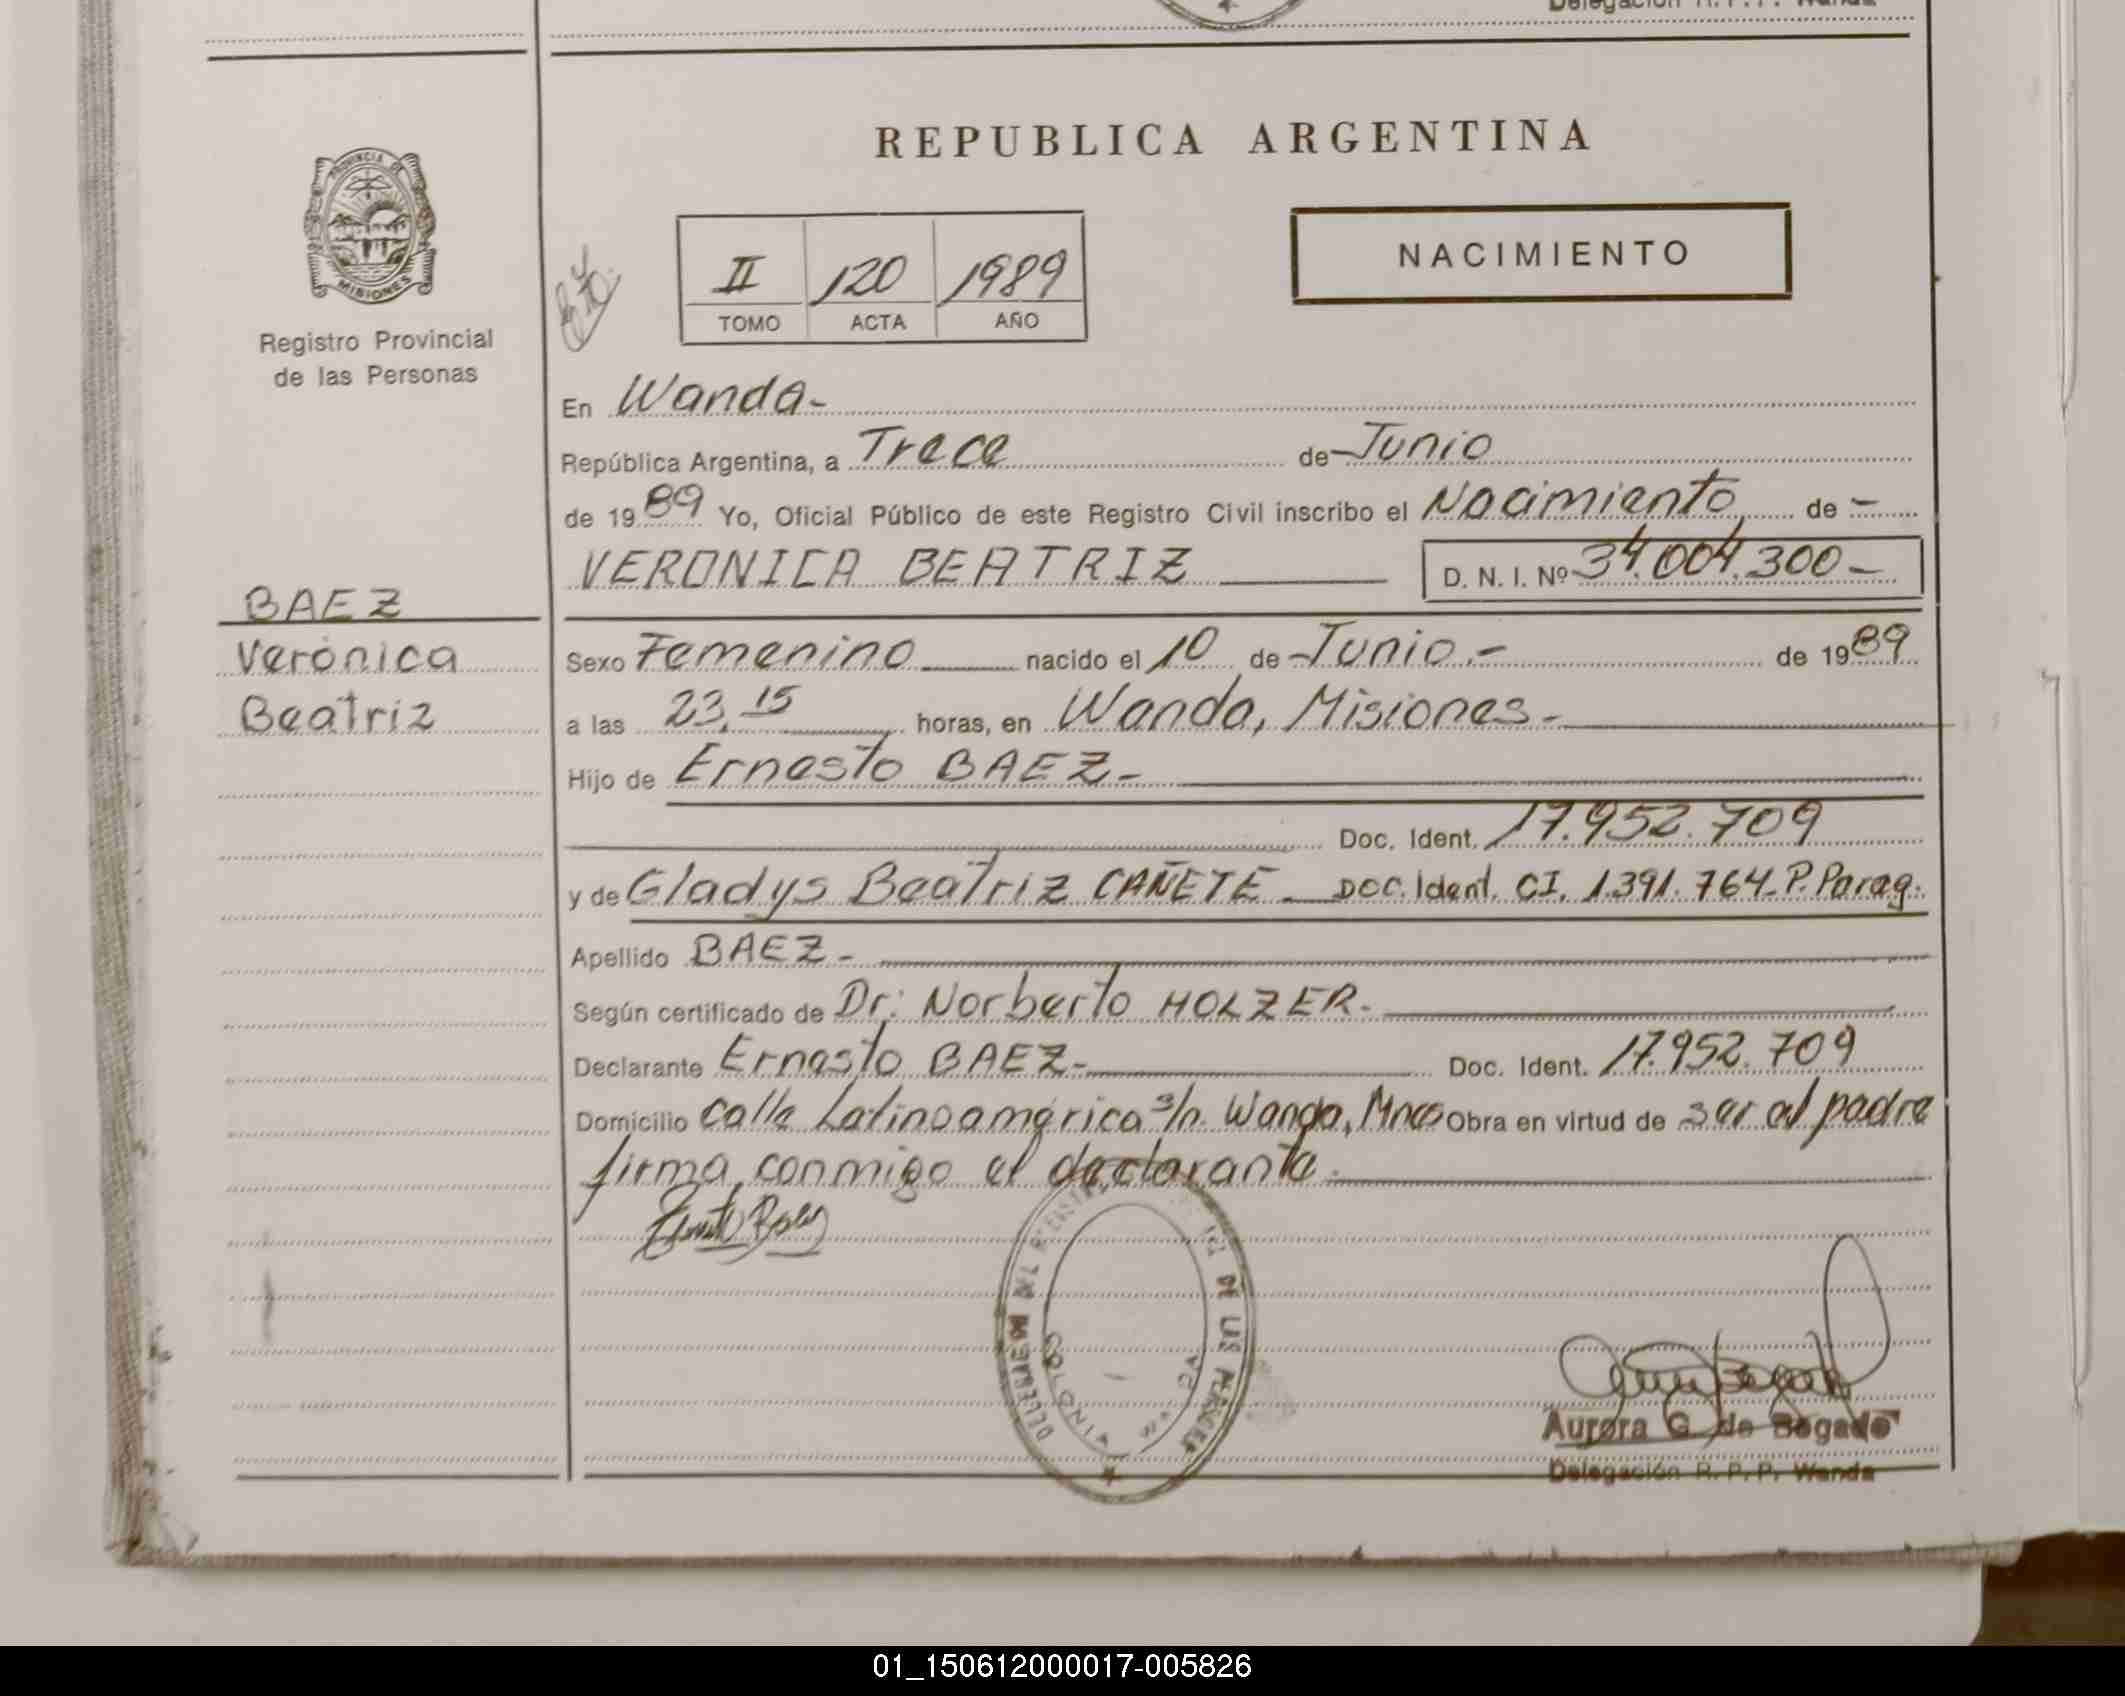 Delegación R. P. P. Wanda
REPUBLICA ARGENTINA
PROVINCIA DE
MISIONES
Registro Provincial
de las Personas
II 120 1989
TOMO ACTA AÑO
NACIMIENTO
En Wanda-
República Argentina, a Trece de Junio
de 1989 Yo, Oficial Público de este Registro Civil inscribo el Nacimiento de -
VERONICA BEATRIZ D. N. I. Nº 34.004.300-
BAEZ
Verónica
Beatriz
Sexo Femenino nacido el 10 de Junio.- de 1989
a las 23,15 horas, en Wanda, Misiones-
Hijo de Ernesto BAEZ-
Doc. Ident. 17.952.709
y de Gladys Beatriz CAÑETE - Doc. Ident. CI. 1.391.764-P. Parag.
Apellido BAEZ-
Según certificado de Dr: Norberto HOLZER.
Declarante Ernesto BAEZ- Doc. Ident. 17.952.709
Domicilio calle Latinoamérica s/n. Wanda, Mnes Obra en virtud de ser el padre
firma conmigo el declarante.
Ernesto Baez
DE LAS PERSONAS
WANDA
Aurora G. de Bogado
Delegación R. P. P. Wanda
01_150612000017-005826